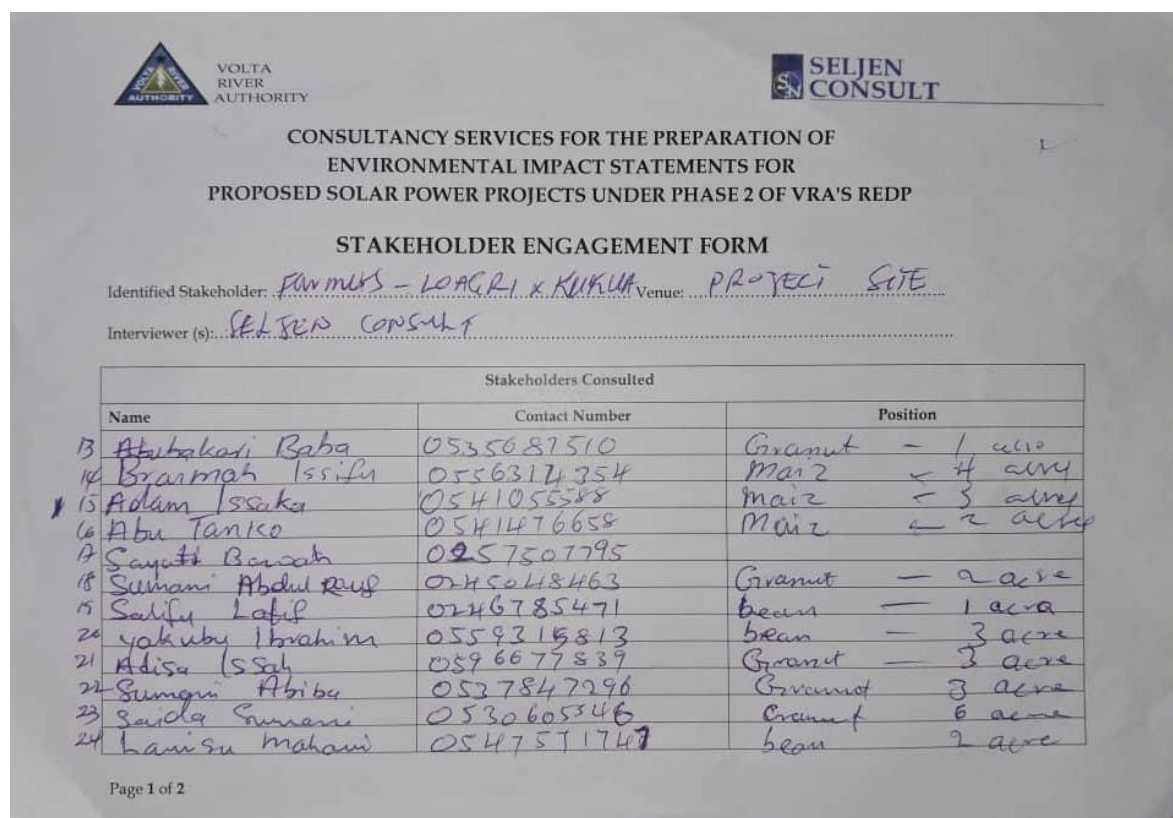 VOLTA
RIVER
AUTHORITY
VOLTA RIVER AUTHORITY
SELJEN
CONSULT
CONSULTANCY SERVICES FOR THE PREPARATION OF
ENVIRONMENTAL IMPACT STATEMENTS FOR
PROPOSED SOLAR POWER PROJECTS UNDER PHASE 2 OF VRA'S REDP
STAKEHOLDER ENGAGEMENT FORM
Identified Stakeholder: Farmers - LOAGRI x KUKUA Venue: PROJECT SITE
Interviewer (s): SELJEN CONSULT
Stakeholders Consulted
Name Contact Number Position
13 Abubakari Baba 0535687510 Granut - 1 acre
14 Brarmah Issifu 0556314354 Maiz - 4 acre
15 Adam Issaka 0541055588 maiz - 3 acre
16 Abu Tanko 0541476658 Maiz - 2 acre
17 Sayatt Bawah 0257507795
18 Sumani Abdul Rauf 0245048463 Granut - 2 acre
19 Salifu Latif 0246785471 bean - 1 acra
20 Yakubu Ibrahim 0559315813 bean - 3 acre
21 Adisa Issah 0596677839 Granut - 3 acre
22 Sumani Abiba 0537847296 Granut 3 acre
23 Saida Sumani 0530605346 Cranut 6 acre
24 Lanisu Mahani 0547571747 bean 2 acre
Page 1 of 2